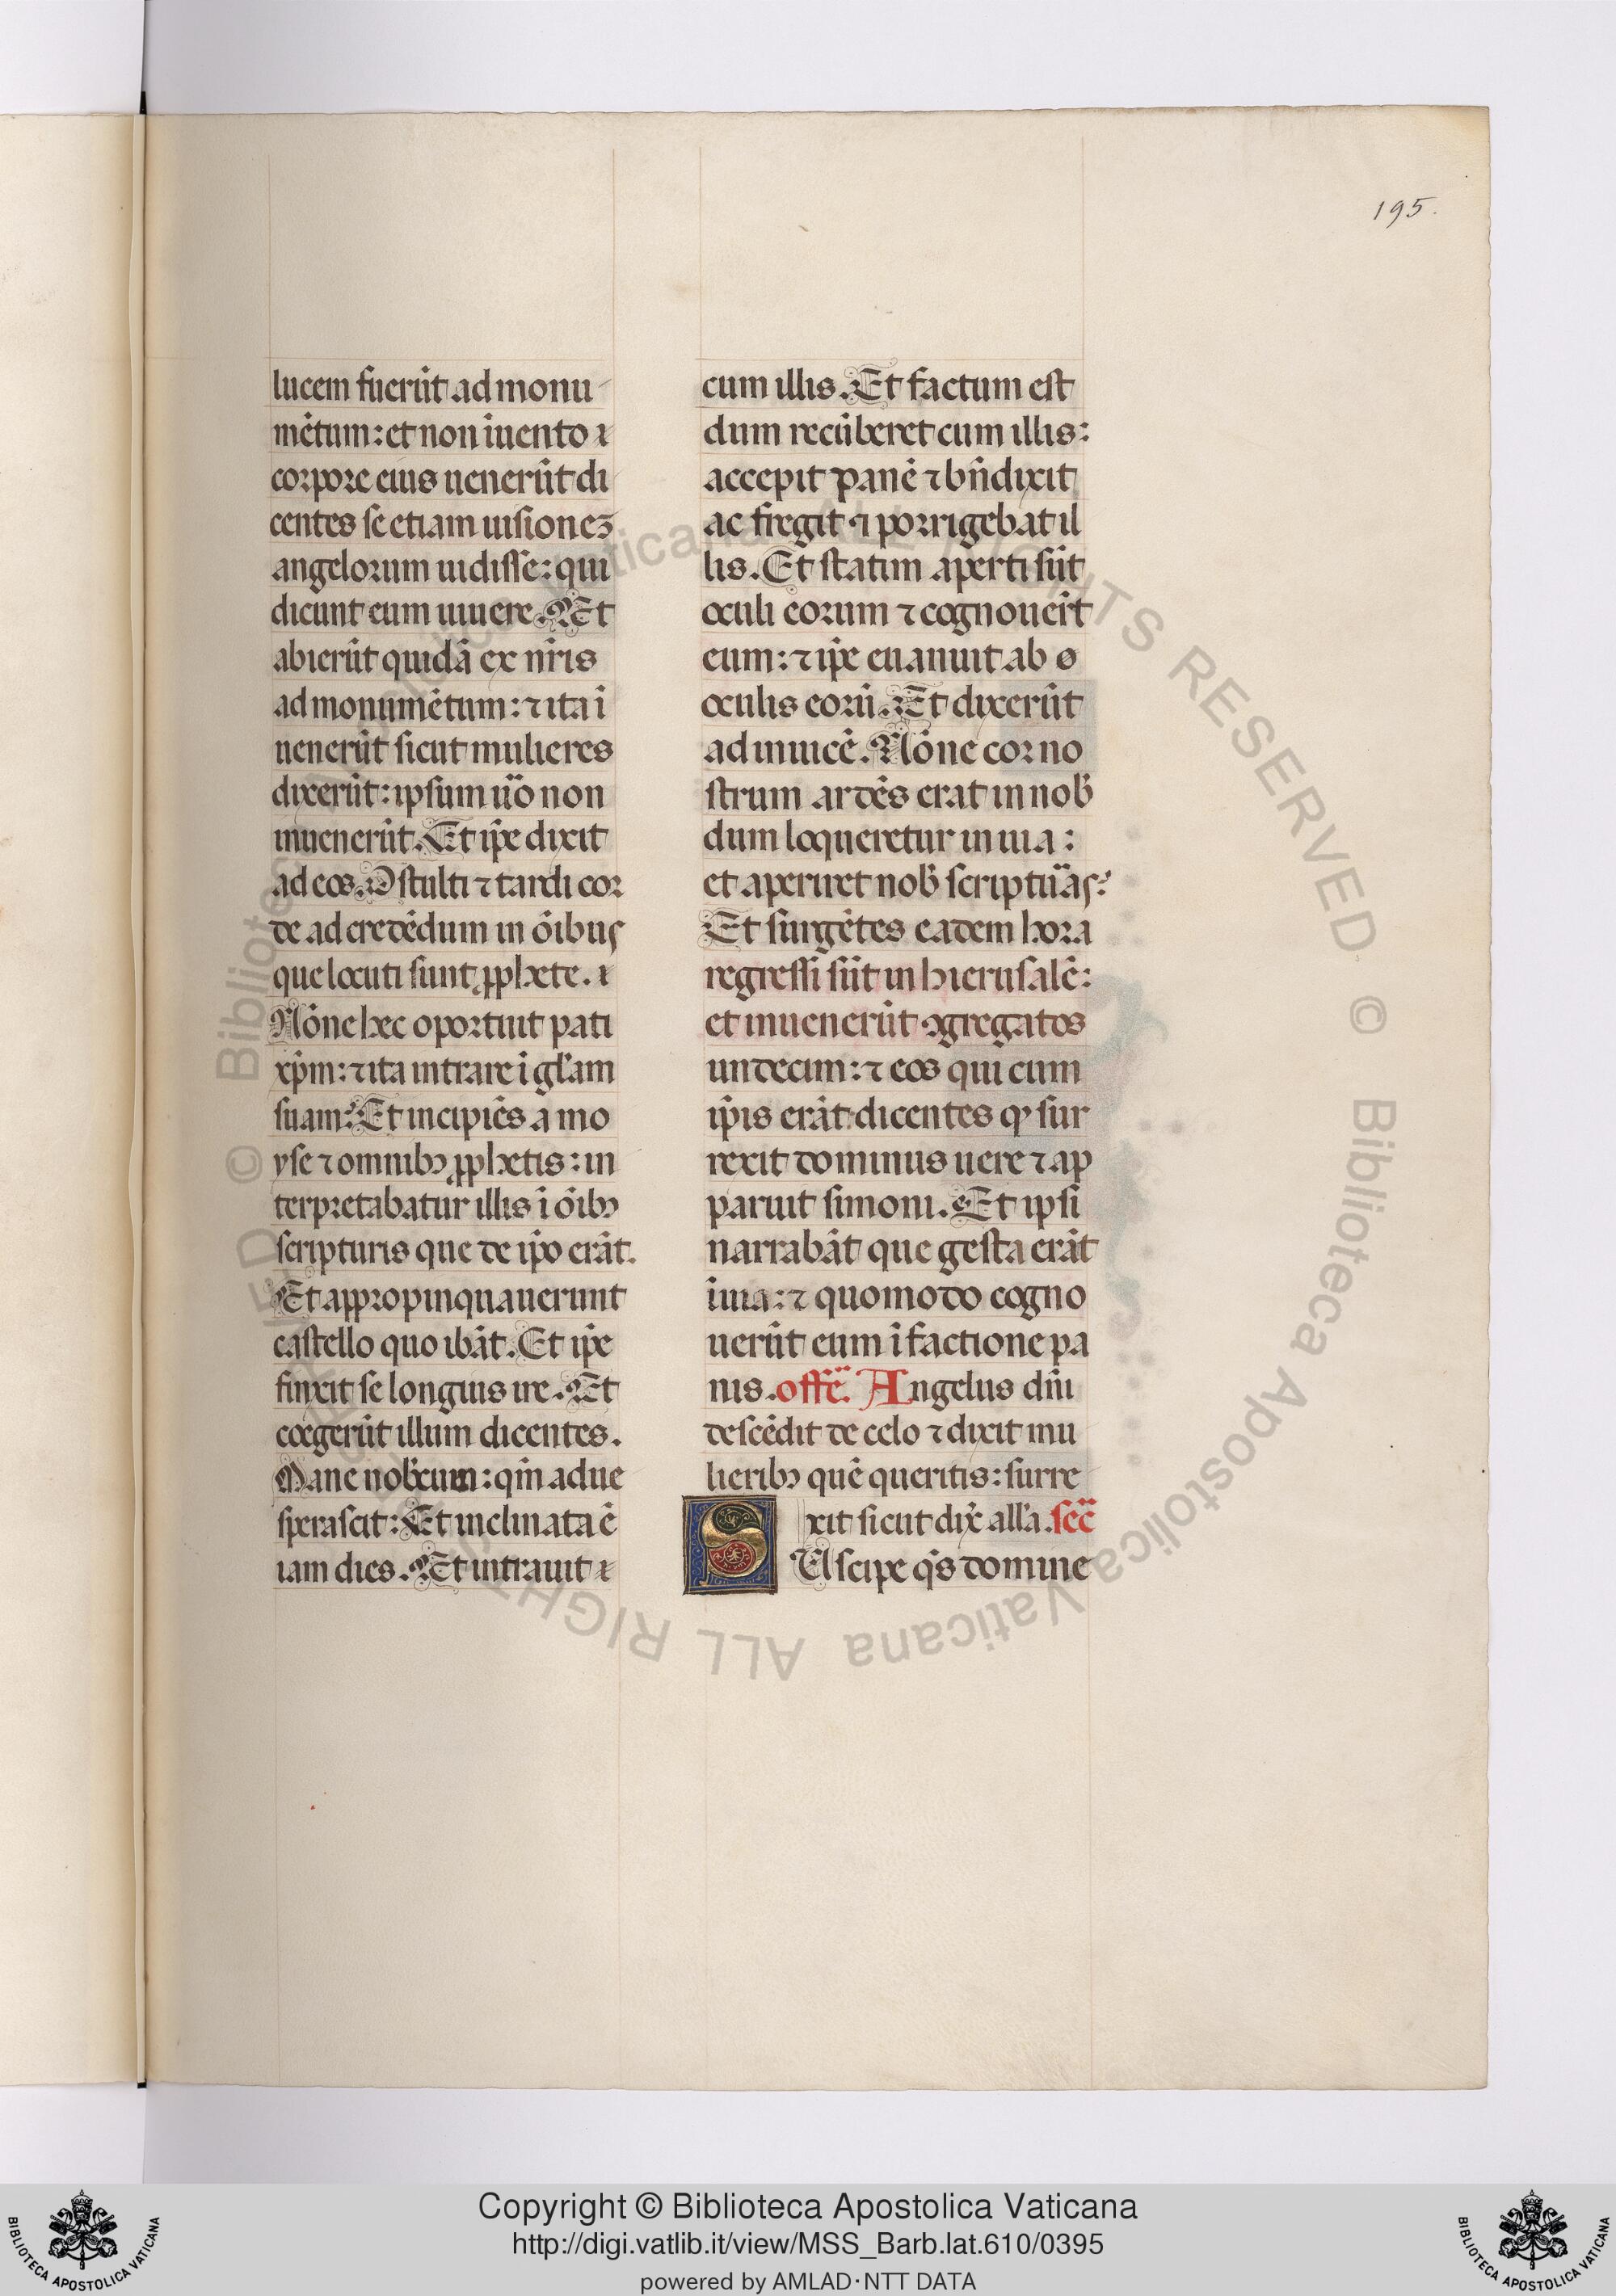 195.
lucem fuerūt ad monu
mētum: et non īuento
corpore eius uenerūt di
centes se etiam uisioneʒ
angelorum uidisse: qui
dicunt eum uiuere. Et
abierūt quidā ex nr̄is
ad monumētum: ⁊ ita ī
uenerūt sicut mulieres
dixerūt: ipsum ūo non
inuenerūt. Et ip̄e dixit
ad eos. O stulti ⁊ tardi cor
de ad credēdum in ōibus
que locuti sunt ꝓphete.
Nōne hec oportuit pati
xp̄m: ⁊ ita intrare ī gl̄am
suam? Et incipiēs a mo
yse ⁊ omnibꝫ ꝓphetis: in
terpretabatur illis ī ōibꝫ
scripturis que de ip̄o erāt.
Et appropinquauerunt
castello quo ibāt. Et ip̄e
finxit se longius ire. Et
coegerūt illum dicentes.
Mane nob̄cum: qm̄ adue
sperascit: Et inclinata ē
iam dies. Et intrauit
cum illis. Et factum est
dum recūberet cum illis:
accepit panē ⁊ bn̄dixit
ac fregit ⁊ porrigebat il
lis. Et statim aperti sūt
oculi eorum ⁊ cognouer̄t
eum: ⁊ ip̄e euanuit ab o
oculis eorū. Et dixerūt
ad inuicē. Nōne cor no
strum ardēs erat in nob̄
dum loqueretur in uia:
et aperiret nob̄ scriptu̅as?
Et surgētes eadem hora
regressi sūt in hierusalē:
et inuenerūt ꝯgregatos
undecim: ⁊ eos qui cum
ip̄is erāt dicentes ꝙ sur
rexit dominus uere ⁊ ap
paruit simoni. Et ipsi
narrabāt que gesta erāt
ī uia: ⁊ quomodo cogno
uerūt eum ī factione pa
nis. offē. Angelus dn̄i
descēdit de celo ⁊ dixit mu
lieribꝫ quē queritis: surre
xit sicut dix̄ all̄a. sec̄
SUscipe qs̄ domine
© Biblioteca Apostolica Vaticana ALL RIGHTS RESERVED © Biblioteca Apostolica Vaticana ALL RIGHTS RESERVED
Copyright © Biblioteca Apostolica Vaticana
http://digi.vatlib.it/view/MSS_Barb.lat.610/0395
powered by AMLAD·NTT DATA
BIBLIOTECA APOSTOLICA VATICANA
BIBLIOTECA APOSTOLICA VATICANA